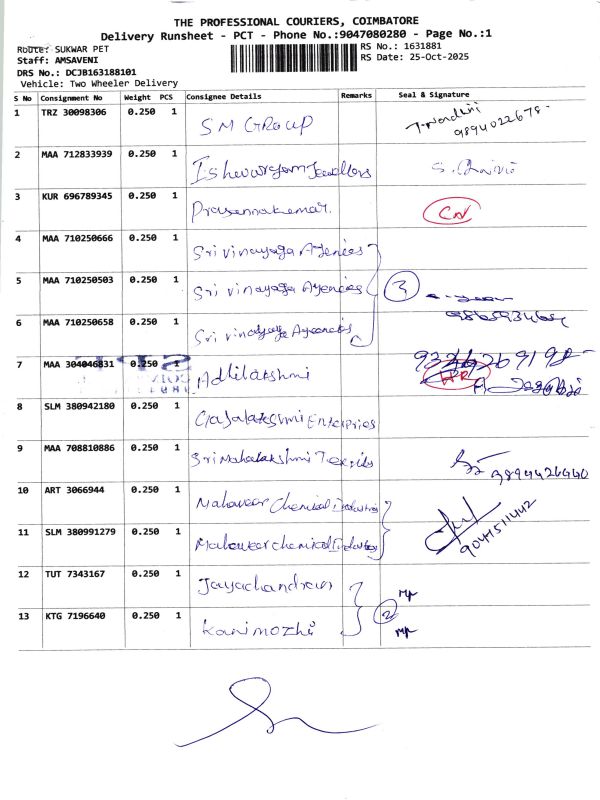 THE PROFESSIONAL COURIERS, COIMBATORE
Delivery Runsheet - PCT - Phone No.:9047080280 - Page No.:1
Route: SUKWAR PET
RS No.: 1631881
Staff: AMSAVENI
RS Date: 25-Oct-2025
DRS No.: DCJB163188101
Vehicle: Two Wheeler Delivery
S No Consignment No Weight PCS Consignee Details Remarks Seal & Signature
1 TRZ 30098306 0.250 1 SM GROUP 9894022678-
2 MAA 712833939 0.250 1 Ishwaryam Jewellers S.
3 KUR 696789345 0.250 1 Prasannakumar. CN
4 MAA 710250666 0.250 1 Sri vinayaga Agencies
5 MAA 710250503 0.250 1 Sri vinayaga Agencies 3
6 MAA 710250658 0.250 1 Sri vinayaga Agencies
7 MAA 304046831 0.250 1 Adhilakshmi
8 SLM 380942180 0.250 1 Gajalakshmi Enterpries
9 MAA 708810886 0.250 1 Sri Mahalakshmi Texstiles 9894426440
10 ART 3066944 0.250 1 Mahaveer Chemical Industries
11 SLM 380991279 0.250 1 Mahaveer Chemical Industries 9047511442
12 TUT 7343167 0.250 1 Jayachandran
13 KTG 7196640 0.250 1 Kanimozhi 2